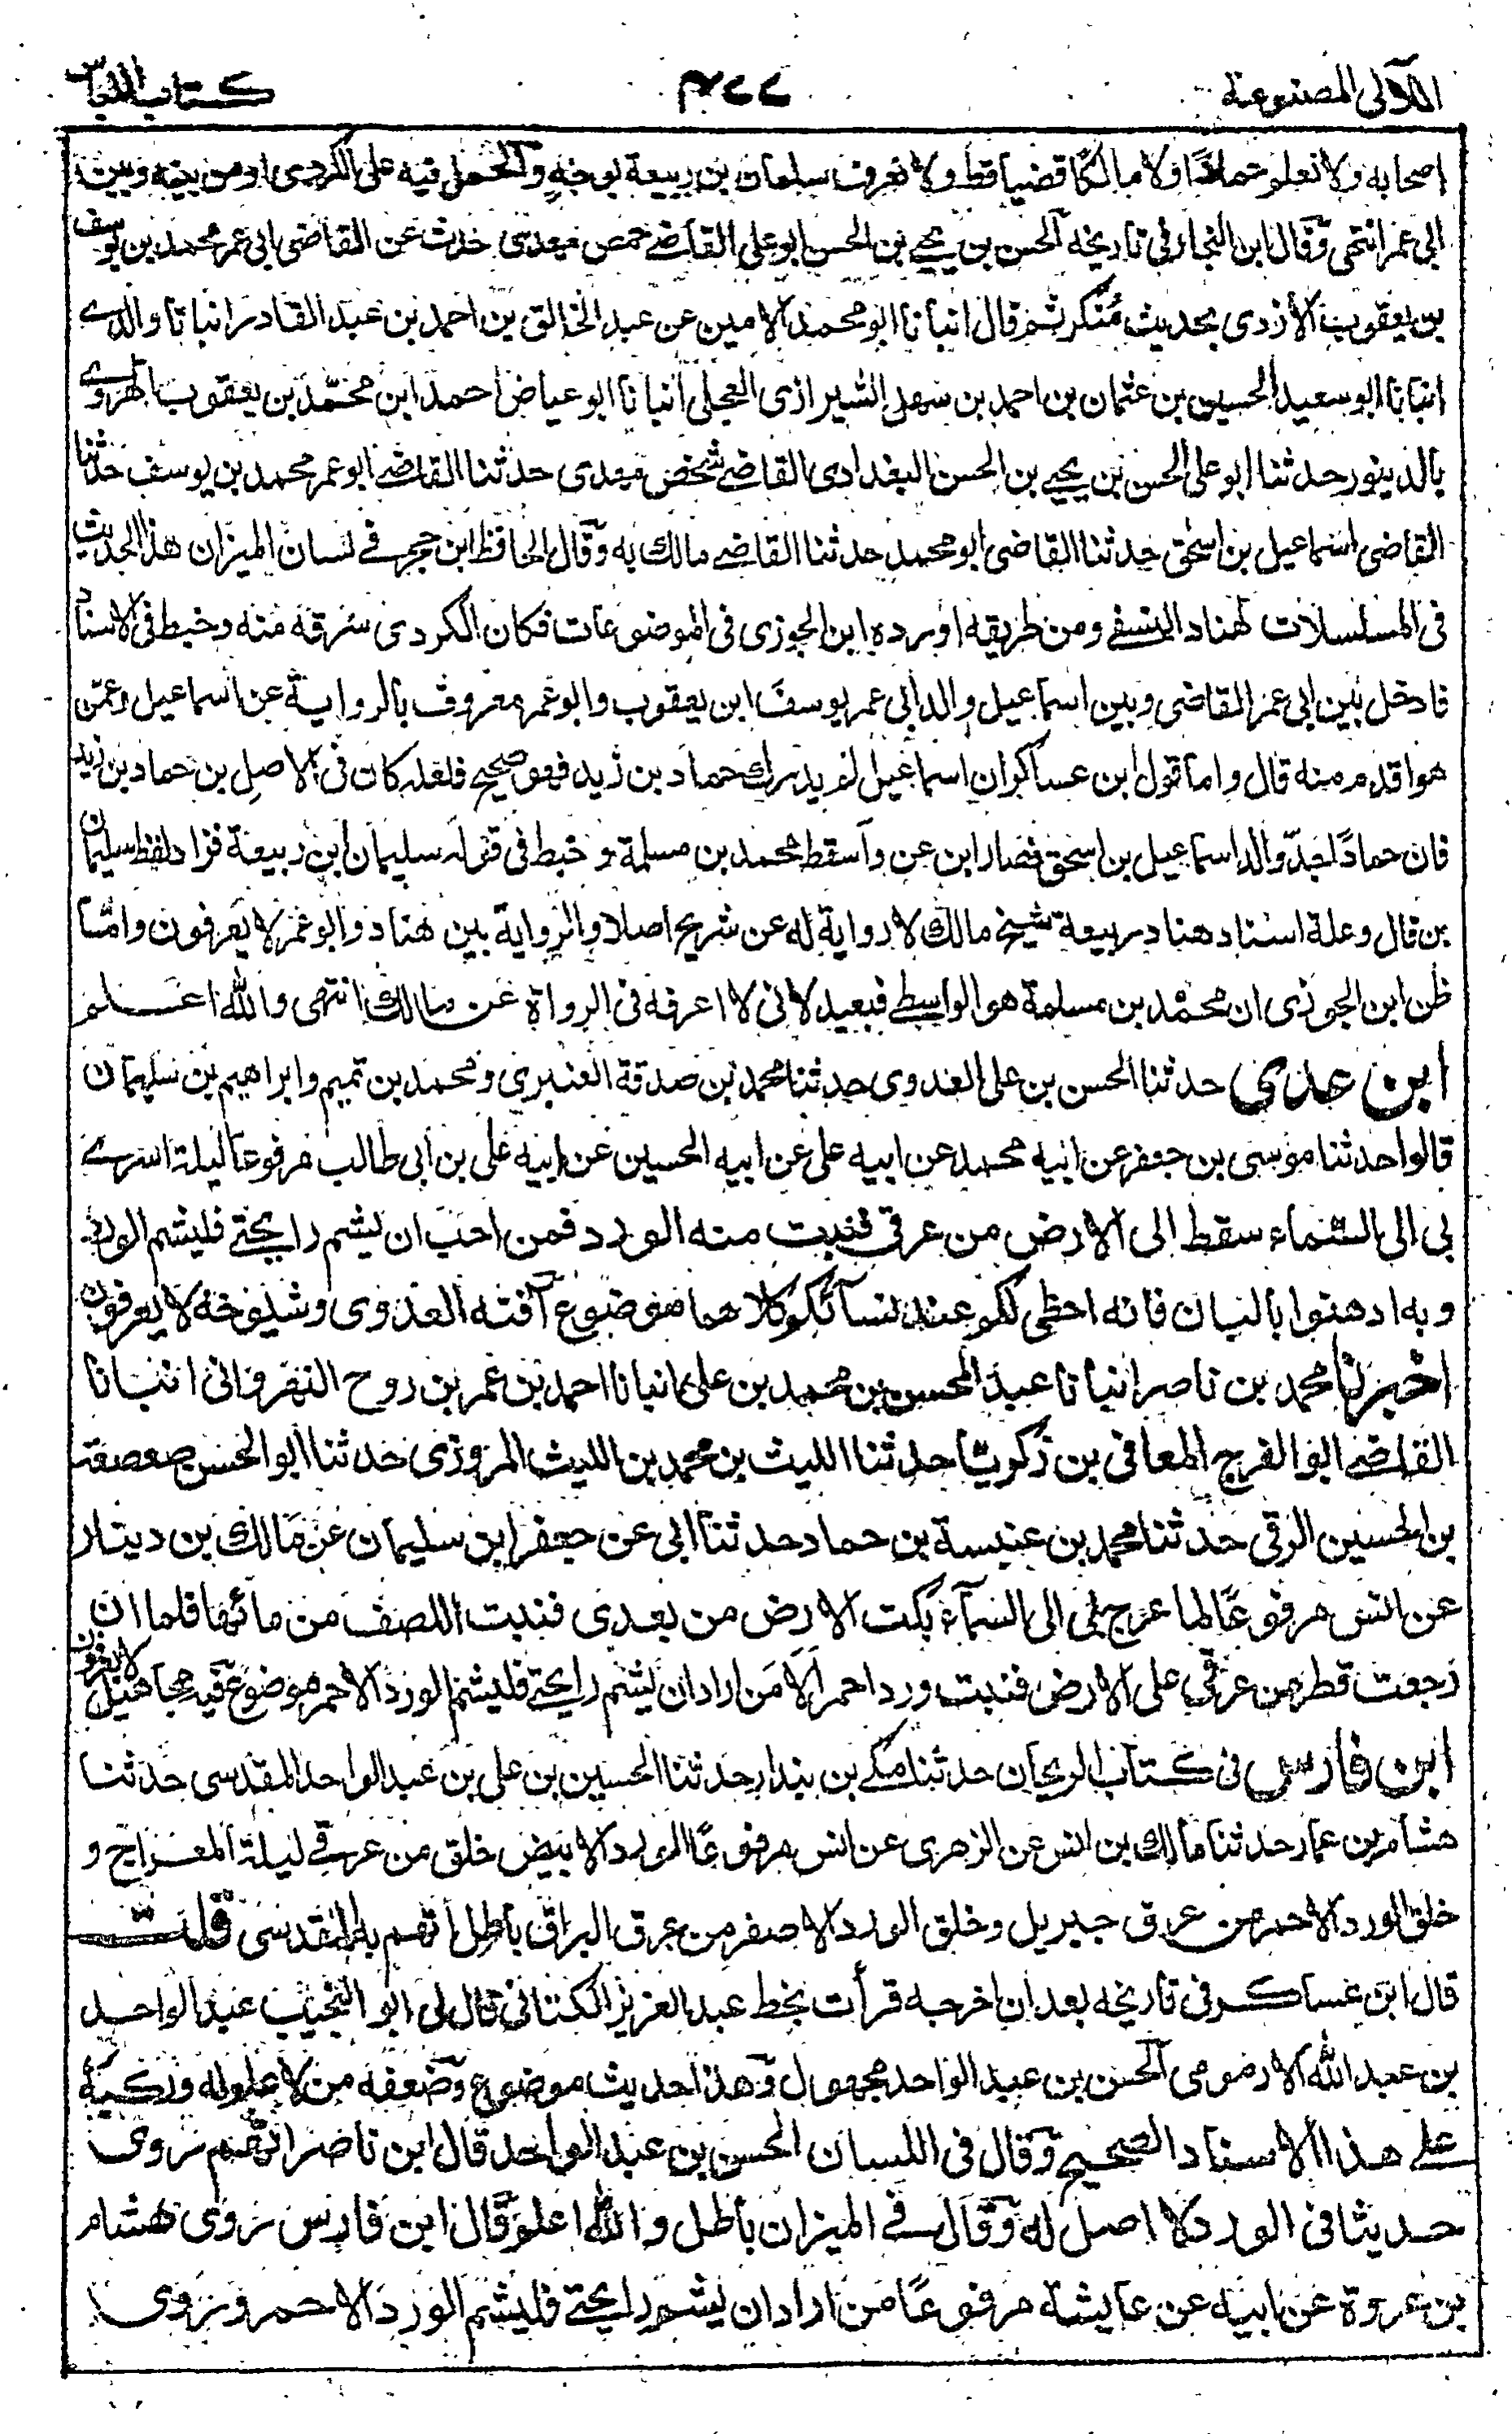 اللآلى المصنوعة ٢٧٧ كتاب اللباس
اصحابه ولا نعلم حمادا ولا مالكا قضيا قط ولا نعرف سلمان بن ربيعة بوجه والحمل فيه على الكردى او من بينه وبين
ابى عمر انتهى وقال ابن النجار فى تاريخه الحسن بن يحيى بن الحسن ابو على القاضى حدث عن القاضى ابى عمر محمد بن يوسف
بن يعقوب الأزدى بحديث منكر ثم قال انبانا ابو محمد الامين عن عبد الخالق بن احمد بن عبد القادر انبانا والدى
انبانا ابو سعيد الحسين بن عثمان بن احمد بن سهل الشيرازى العجلى انبانا ابو عياض احمد ابن محمد بن يعقوب الهروى
بالدينور حدثنا ابو على الحسن بن يحيى بن الحسن البغدادى القاضى حدثنا القاضى ابو عمر محمد بن يوسف حدثنا
القاضى اسماعيل بن اسحق حدثنا القاضى ابو محمد حدثنا القاضى مالك به وقال الحافظ ابن حجر فى لسان الميزان هذا الحديث
فى المسلسلات لهناد النسفى ومن طريقه اورده ابن الجوزى فى الموضوعات فكان الكردى سرقه منه وخبط فى الاسناد
فادخل بين ابى عمر القاضى وبين اسماعيل والد ابى عمر يوسف ابن يعقوب وابو عمر معروف بالرواية عن اسماعيل وعمن
هو اقدم منه قال واما قول ابن عساكر ان اسماعيل لم يدرك حماد بن زيد فهو صحيح فلعله كان فى الاصل بن حماد بن زيد
فان حمادا جد والد اسماعيل بن اسحق فصار ابن عن واسقط محمد بن مسلمة وخبط فى قوله سليمان ابن ربيعة فزاد لفظ سليمان
بن قال وعلة اسناد هناد ربيعة شيخ مالك لا رواية له عن شريح اصلا والرواية بين هناد وابو عمر لا يعرفون واما
ظن ابن الجوزى ان محمد بن مسلمة هو الواسطى فبعيد لانى لا اعرفه فى الرواة عن مالك انتهى والله اعلم
ابن عدى حدثنا الحسن بن على العدوى حدثنا محمد بن صدقة العنبرى ومحمد بن تميم وابراهيم بن سليمان
قالوا حدثنا موسى بن جعفر عن ابيه محمد عن ابيه على عن ابيه الحسين عن ابيه على بن ابى طالب مرفوعا ليلة اسرى
بى الى السماء سقط الى الارض من عرقى فنبت منه الورد فمن احب ان يشم رايحتى فليشم الورد
وبه ادهنوا بالبان فانه احظى لكم عند نسآئكم كلاهما موضوع آفته العدوى وشيوخه لا يعرفون
اخبرنا محمد بن ناصر انبانا عبد المحسن بن محمد بن على انبانا احمد بن عمر بن روح النهروانى انبانا
القاضى ابو الفرج المعافى بن زكريا حدثنا الليث بن محمد بن الليث المروزى حدثنا ابو الحسن صعصعة
بن الحسين الرقى حدثنا محمد بن عنبسة بن حماد حدثنا ابى عن جعفر ابن سليمان عن مالك بن دينار
عن انس مرفوعا لما عرج بى الى السمآء بكت الارض من بعدى فنبت اللصف من مائها فلما ان
رجعت قطر من عرقى على الارض فنبت ورد احمر الا من اراد ان يشم رايحتى فليشم الورد الاحمر موضوع فيه مجاهيل لا يعرفون
ابن فارس فى كتاب الريحان حدثنا مكى بن بندار حدثنا الحسين بن على بن عبد الواحد المقدسى حدثنا
هشام بن عمار حدثنا مالك بن انس عن الزهرى عن انس مرفوعا الورد الابيض خلق من عرقى ليلة المعراج و
خلق الورد الاحمر من عرق جبريل وخلق الورد الاصفر من عرق البراق باطل اتهم به المقدسى قلت
قال ابن عساكر فى تاريخه بعد ان اخرجه قرأت بخط عبد العزيز الكتانى قال لى ابو النجيب عبد الواحد
بن عبد الله الارموى الحسن بن عبد الواحد مجهول وهذا حديث موضوع وضعفه من لا علم له وركبه
على هذا الاسناد الصحيح وقال فى اللسان الحسن بن عبد الواحد قال ابن ناصر اتهم روى
حديثا فى الورد لا اصل له وقال فى الميزان باطل والله اعلم وقال ابن فارس روى هشام
بن عروة عن ابيه عن عايشة مرفوعا من اراد ان يشم رايحتى فليشم الورد الاحمر وروى